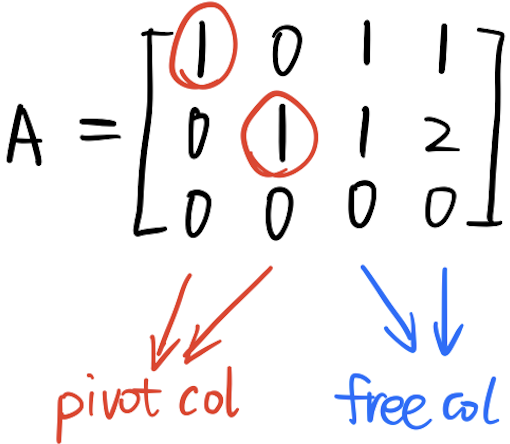 1 0 1 1
A = 0 1 1 2
0 0 0 0
pivot col free col